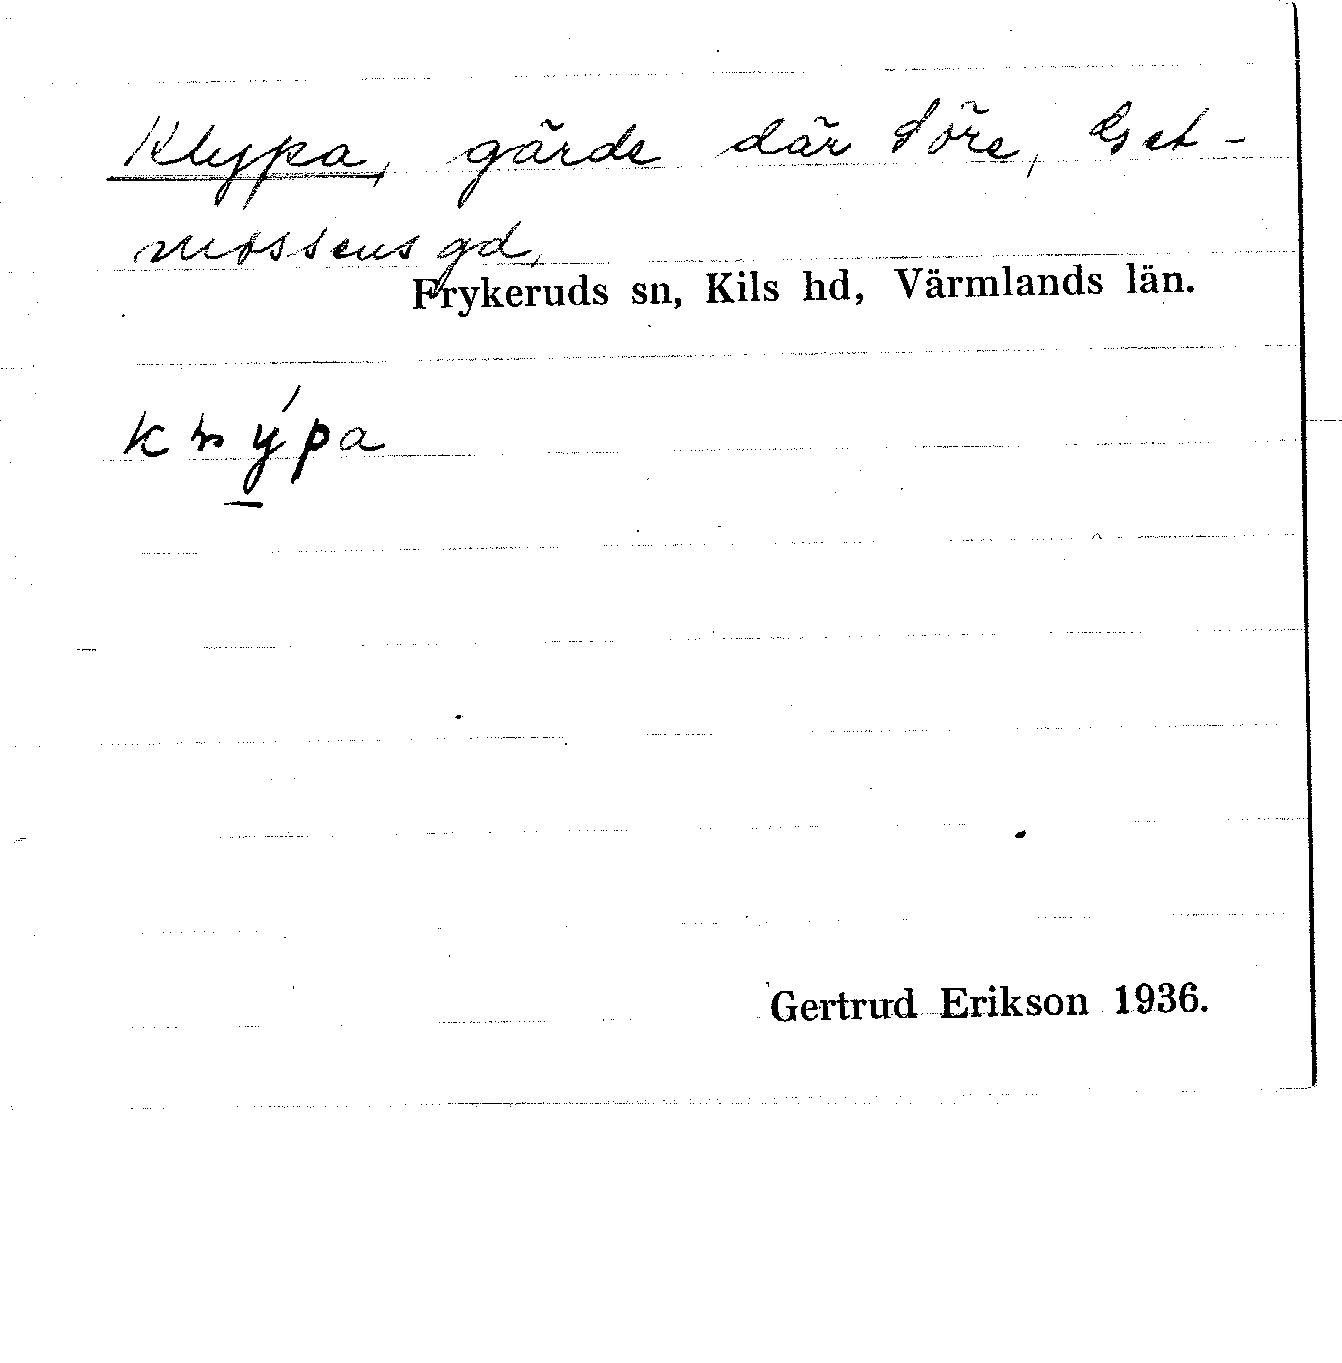 Klypa, gärde där Söre, Get-
mossens gd,
Frykeruds sn, Kils hd, Värmlands län.
Gertrud Erikson 1936.